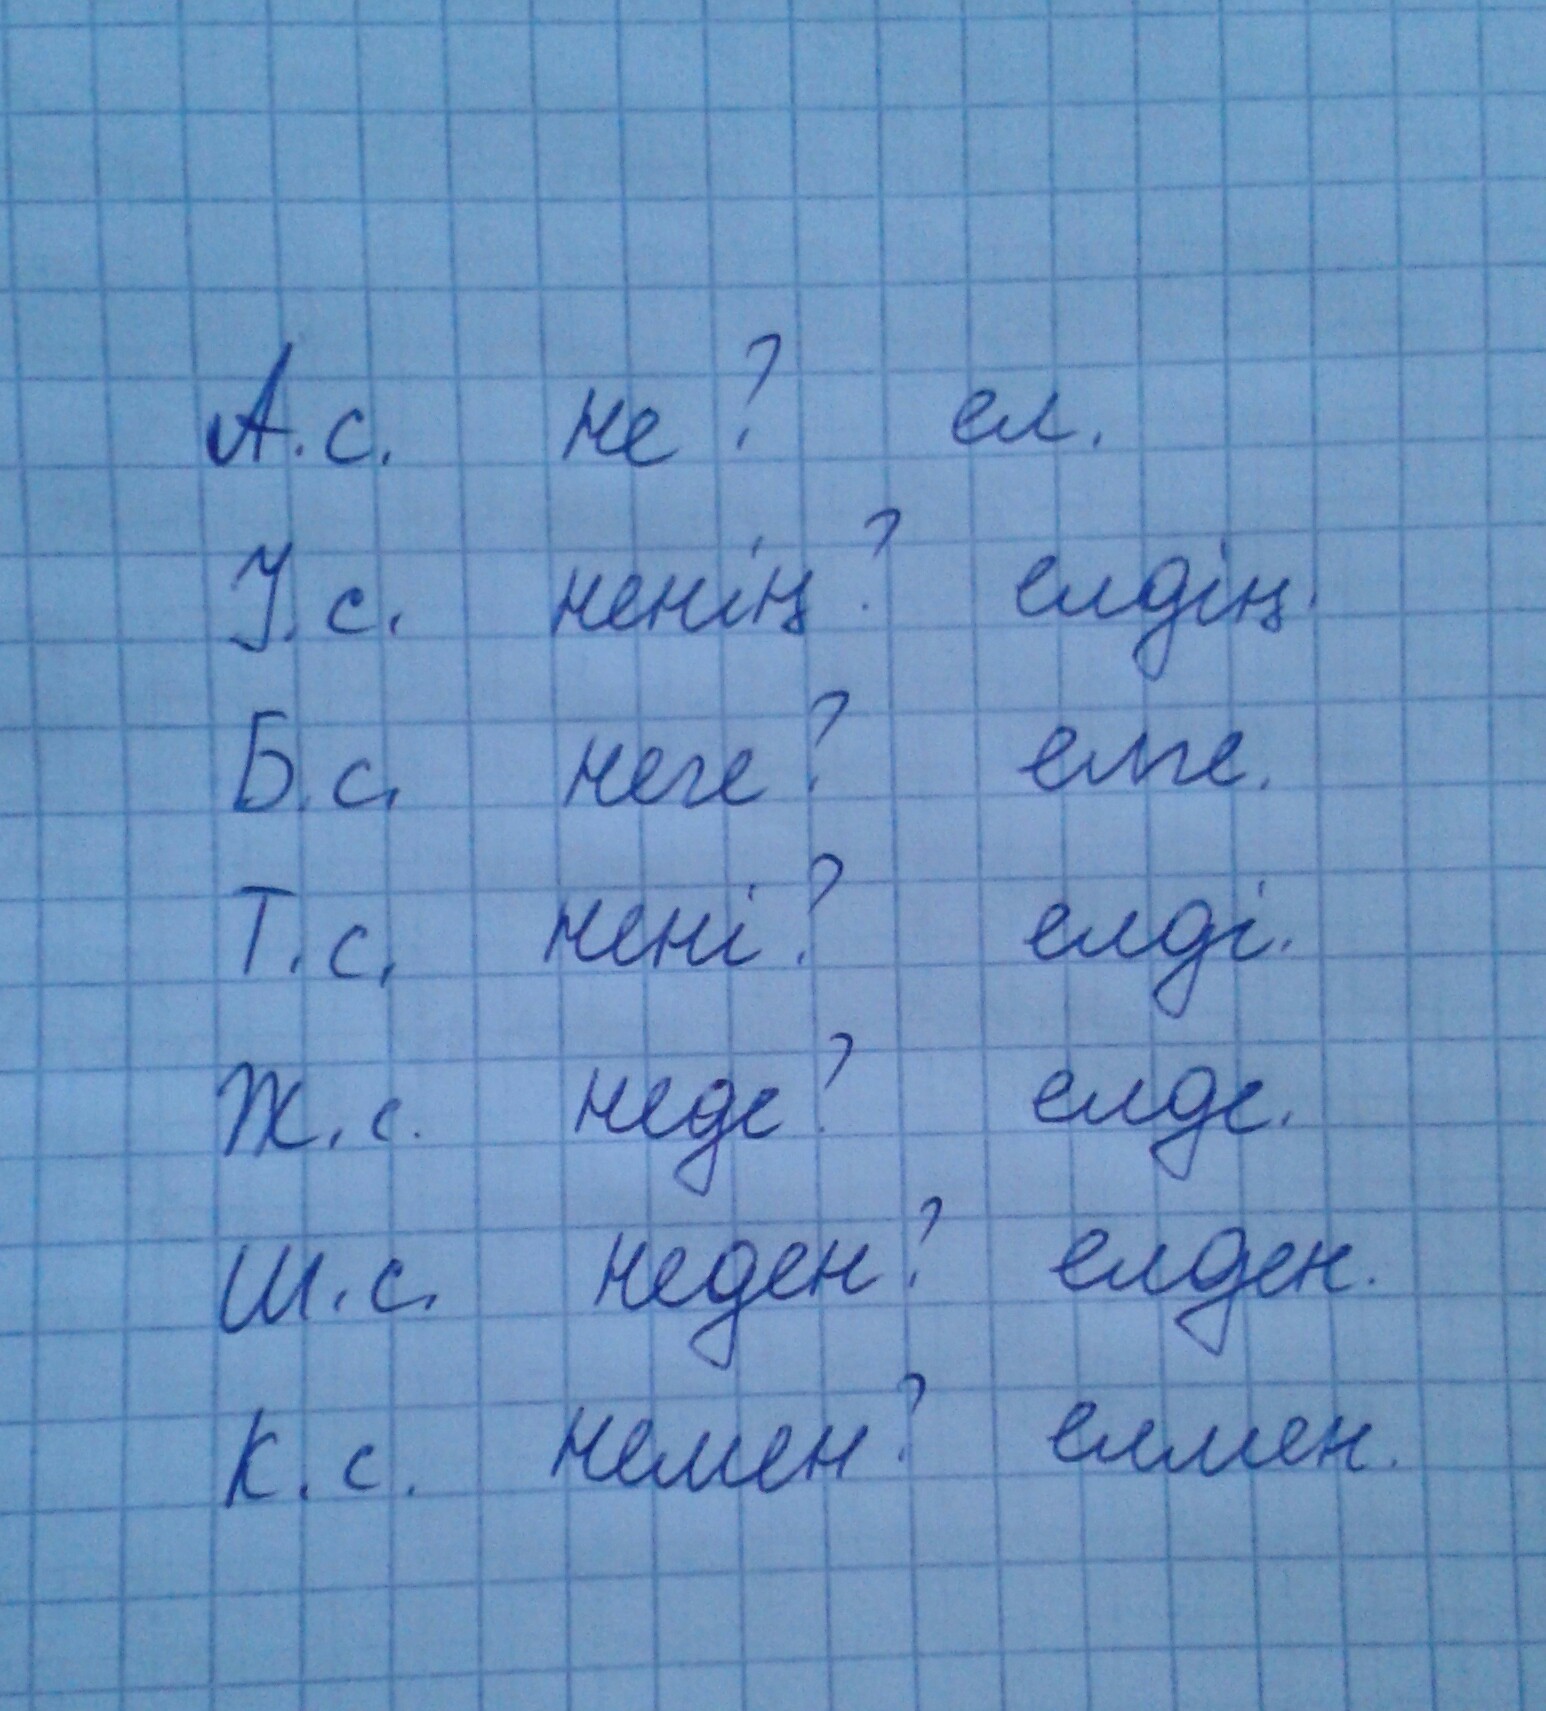 А.с. не? ел.
І.с. ненің? елдің.
Б.с. неге? елге.
Т.с. нені? елді.
Ж.с. неде? елде.
Ш.с. неден? елден.
К.с. немен? елмен.